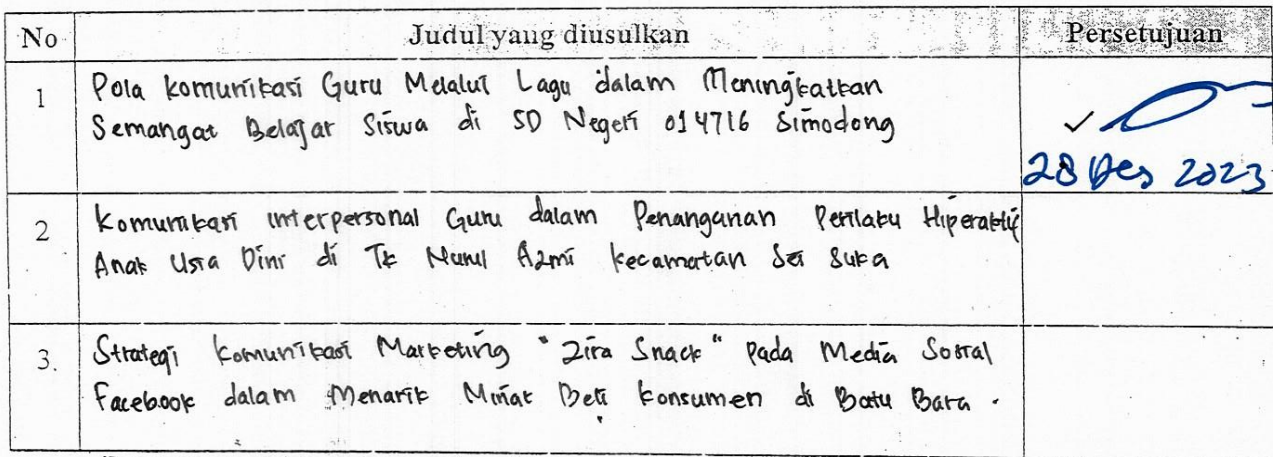 No Judul yang diusulkan Persetujuan
1 Pola Komunikasi Guru Melalui Lagu dalam Meningkatkan
Semangat Belajar Siswa di SD Negeri 014716 Simodong
✓
28 Des 2023
2. Komunikasi interpersonal Guru dalam Penanganan Perilaku Hiperaktif
Anak Usia Dini di TK Nurul Azmi Kecamatan Sei Suka
3. Strategi Komunikasi Marketing "Zira Snack" Pada Media Sosial
Facebook dalam Menarik Minat Beli Konsumen di Batu Bara.